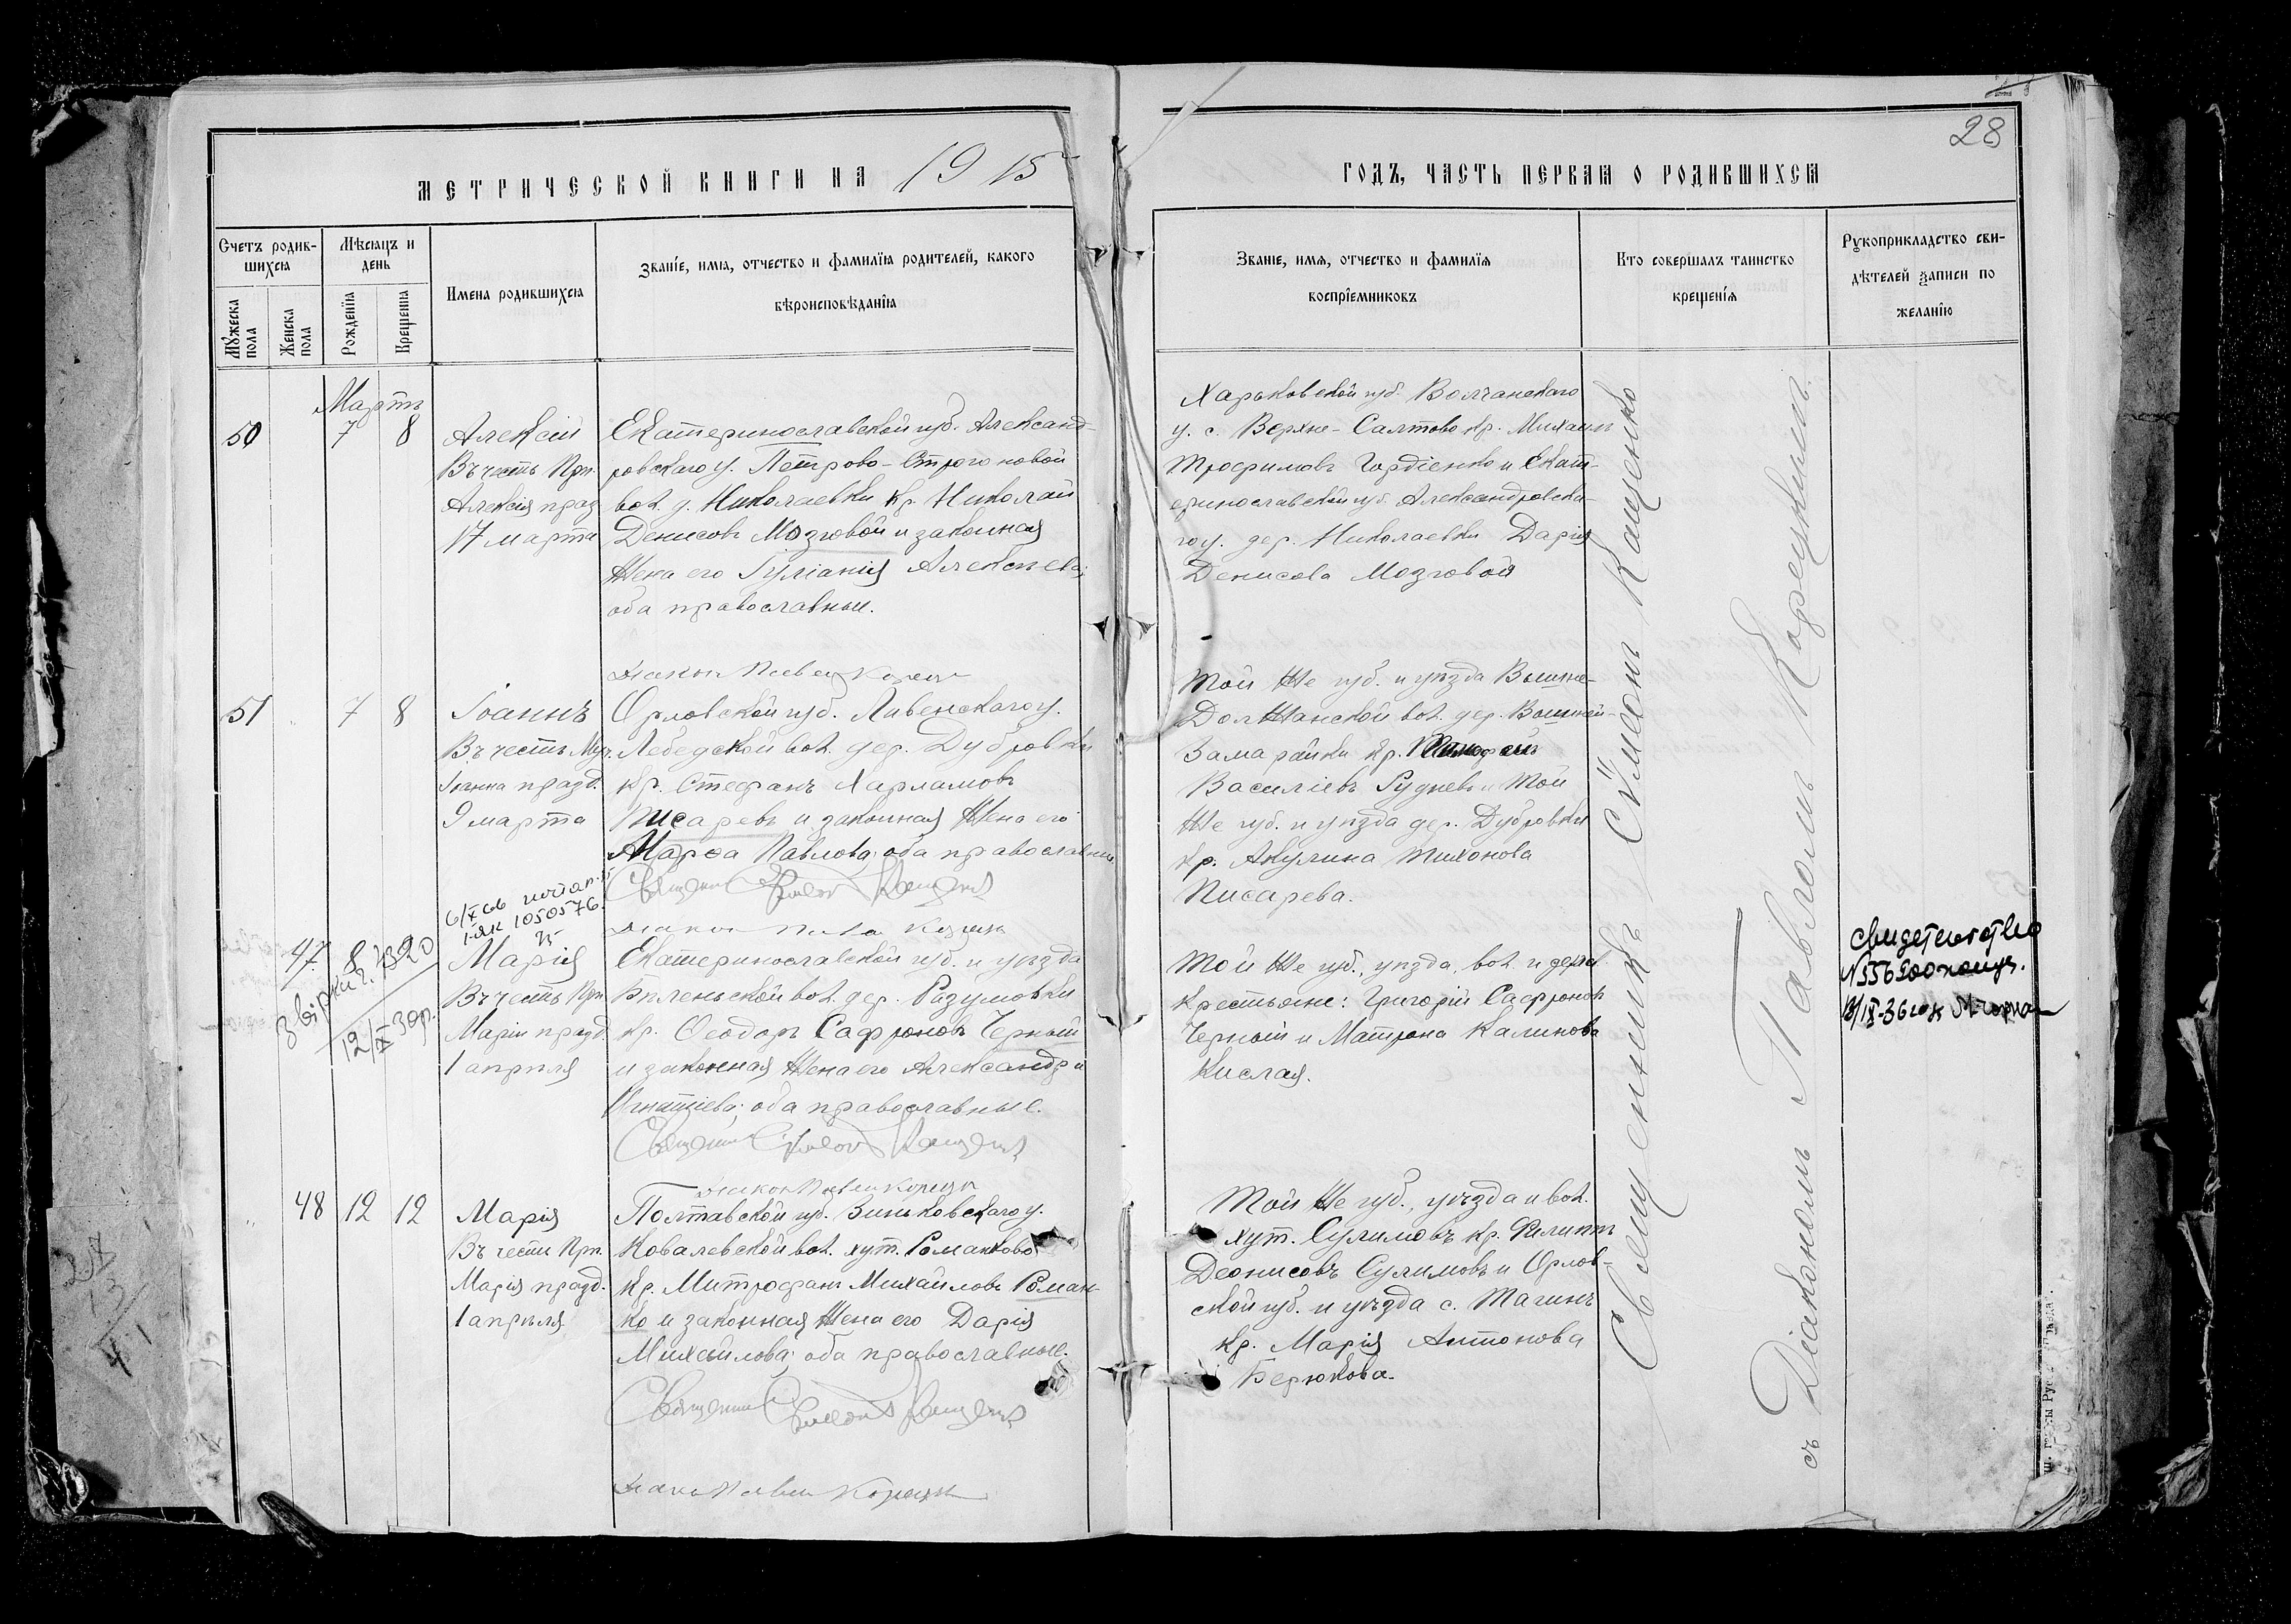 28
МЕТРИЧЕСКОЙ КНИГИ НА 1915
ГОДЪ, ЧАСТЬ ПЕРВАЯ О РОДИВШИХСЯ
Счетъ родив-
шихся
Мужеска пола
Женска пола
Мѣсяцъ и
день
Рожденія
Крещенія
Имена родившихся
Званіе, имя, отчество и фамилія родителей, какого
вѣроисповѣданія
Званіе, имя, отчество и фамилія
воспріемниковъ
Кто совершалъ таинство
крещенія
Рукоприкладство сви-
дѣтелей записи по
желанію
Мартъ
50 7 8
Алексій
Въ честь Прп.
Алексія празд.
17 марта
Екатеринославской губ. Александ-
ровскаго у. Петрово-
вол. д. Николаевки кр. Николай
Денисовъ Мозговой и законная
жена его Іуліанія Алексѣева;
оба православные.
Харьковской губ. Волчанскаго
у. с. Верхне-Салтово кр. Михаилъ
Трофимовъ Гордіенко и Екат-
еринославской губ. Александровска-
го у. дер. Николаевки Дарія
Денисова Мозговой
51 7 8
Іоаннъ
Въ честь Муч.
Іоанна празд.
9 марта
Орловской губ. Ливенскаго у.
Лебедской вол. дер. Дубровки
кр. Стефанъ Харламовъ
Писаревъ и законная жена его
Марѳа Павлова; оба православные
Той же губ. и уѣзда Вышне-
Должанской вол. дер. Вышней-
Замарайки кр.
Василіевъ Рудневъ и той
же губ. и уѣзда дер. Дубровки
кр. Акулина Тихонова
Писарева.
6/X 66
I-ЯК 1050576
47 8
Звірки
12/X 30р.
Марія
Въ честь Прп.
Маріи празд.
1 апрѣля
Екатеринославской губ. и уѣзда
Бѣленьской вол. дер. Разумовки
кр. Ѳеодоръ Сафроновъ Черный
и законная жена его Александра
Игнатіева; оба православные.
Той же губ., уѣзда, вол. и дерев.
Крестьяне: Григорій Сафроновъ
Черный и Матрона Калинова
Кислая.
Свидетельство
48 12 12
Марія
Въ честь Прп.
Марія празд.
1 апрѣля
Полтавской губ. Зиньковскаго у.
Ковалевской вол. хут. Романково
кр. Митрофанъ Михайловъ Роман-
ко и законная жена его Дарія
Михайлова; оба православные.
Той же губ., уѣзда и вол.
хут. Сулимовъ кр. Филиппъ
Деонисовъ Сулимовъ и Орлов-
ской губ. и уѣзда с. Тагинъ
кр. Марія Антонова
Берюкова.
Священникъ Сѵмеонъ Кащенко
съ Діакономъ Павломъ Корецкимъ.